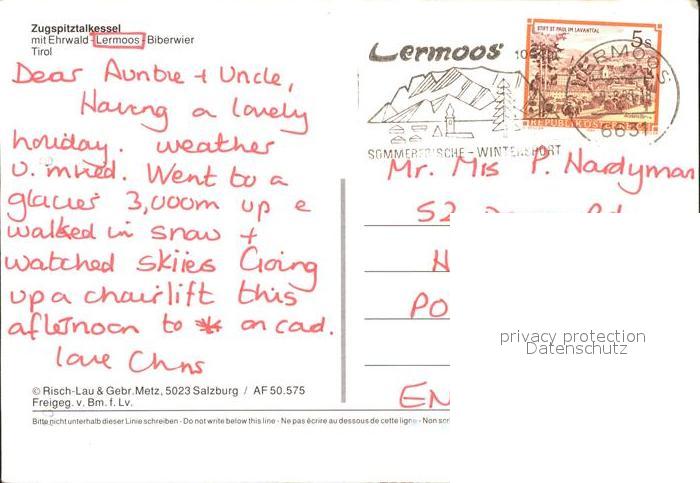 Zugspitztalkessel
mit Ehrwald-Lermoos-Biberwier
Tirol
Dear Auntie + Uncle,
Having a lovely
holiday. weather
v. mixed. Went to a
glacier 3,000m up &
walked in snow +
watched skiies Going
up a chairlift this
afternoon to * on card.
love Chris
© Risch-Lau & Gebr. Metz, 5023 Salzburg / AF 50.575
Freigeg. v. Bm. f. Lv.
Bitte nicht unterhalb dieser Linie schreiben - Do not write below this line - Ne pas écrire au dessous de cette ligne - Non
Lermoos
SOMMERFRISCHE - WINTERSPORT
STIFT ST. PAUL IM LAVANTTAL
5s
REPUBLIK
LERMOOS
6631
Mr. Mrs P. Hardyman
52
H
PO
EN
privacy protection
Datenschutz